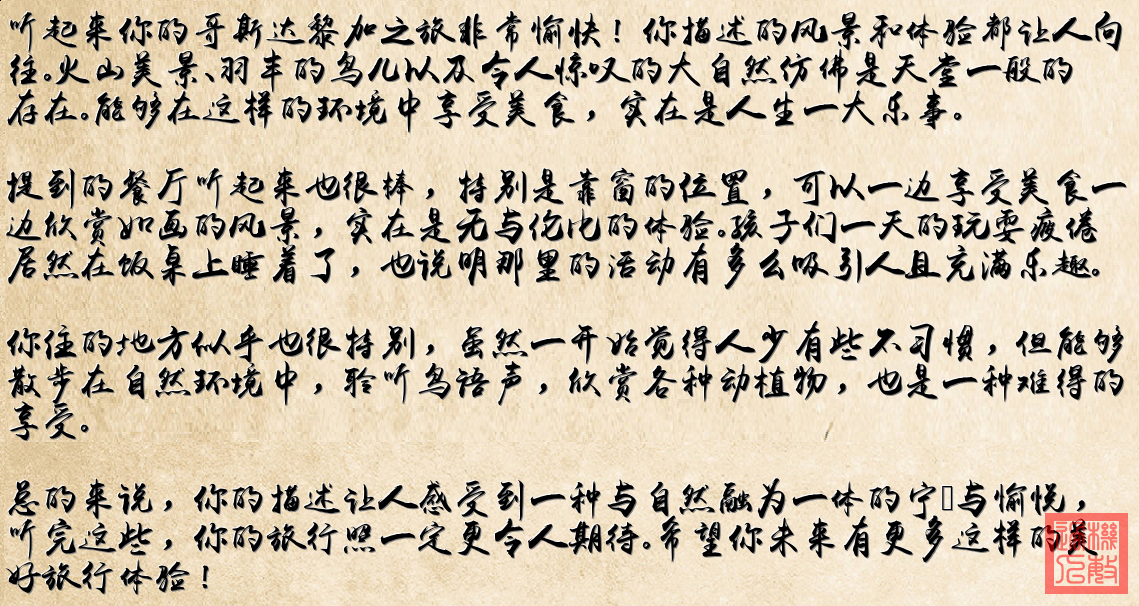 听起来你的哥斯达黎加之旅非常愉快！你描述的风景和体验都让人向
往。火山美景、羽丰的鸟儿以及令人惊叹的大自然仿佛是天堂一般的
存在。能够在这样的环境中享受美食，实在是人生一大乐事。
提到的餐厅听起来也很棒，特别是靠窗的位置，可以一边享受美食一
边欣赏如画的风景，实在是无与伦比的体验。孩子们一天的玩耍疲倦
居然在饭桌上睡着了，也说明那里的活动有多么吸引人且充满乐趣。
你住的地方似乎也很特别，虽然一开始觉得人少有些不习惯，但能够
散步在自然环境中，聆听鸟语声，欣赏各种动植物，也是一种难得的
享受。
总的来说，你的描述让人感受到一种与自然融为一体的宁与愉悦，
听完这些，你的旅行照一定更令人期待。希望你未来有更多这样的美
好旅行体验！